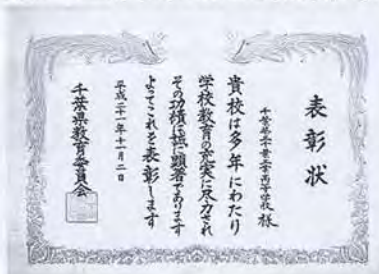 表彰状
千葉県立千葉高等学校 様
貴校は多年にわたり
学校教育の充実に尽力され
その功績は誠に顕著であります
よってこれを表彰します
平成二十一年十一月二日
千葉県教育委員会